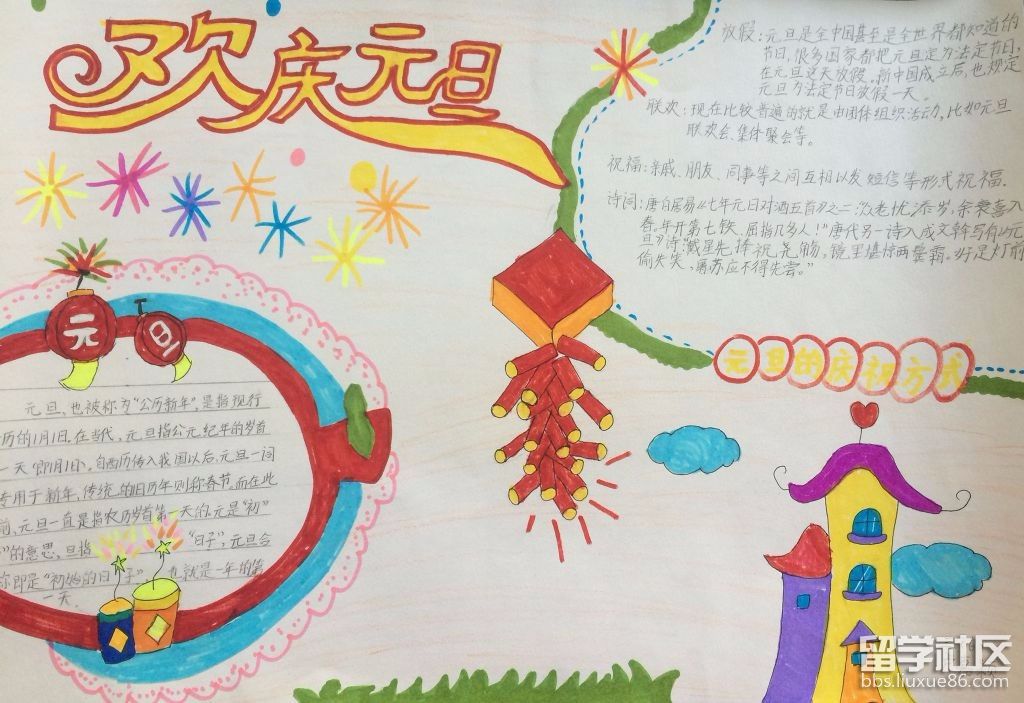 欢庆元旦
放假：元旦是全中国甚至是全世界都知道的
节日，很多国家都把元旦定为法定节日，
在元旦这天放假。新中国成立后，也规定
元旦为法定节日放假一天。
联欢：现在比较普遍的就是由团体组织活动，比如元旦
联欢会、集体聚会等。
祝福：亲戚、朋友、同事等之间互相以发短信等形式祝福．
诗词：唐白居易《七年元日对酒五首》之二：众老忧添岁，余衰喜入
春。年开第七帙，屈指几多人！"唐代另一诗人成文斡写有《元
旦》诗：戴星先捧祝尧觞，镜里堪惊两鬓霜。好是灯前
偷失笑，屠苏应不得先尝。"
元旦的庆祝方式
元旦
元旦，也被称为"公历新年"，是指现行
历的1月1日。在当代，元旦指公元纪年的岁首
一天即1月1日。自西历传入我国以后，元旦一词
专用于新年，传统的旧历年则称春节。而在此
前，元旦一直是指农历岁首第一天的。元是"初"
"的意思，旦指 "日子"，元旦合
称即是"初始的日子"，也就是一年的第
一天．
留学社区
bbs.liuxue86.com